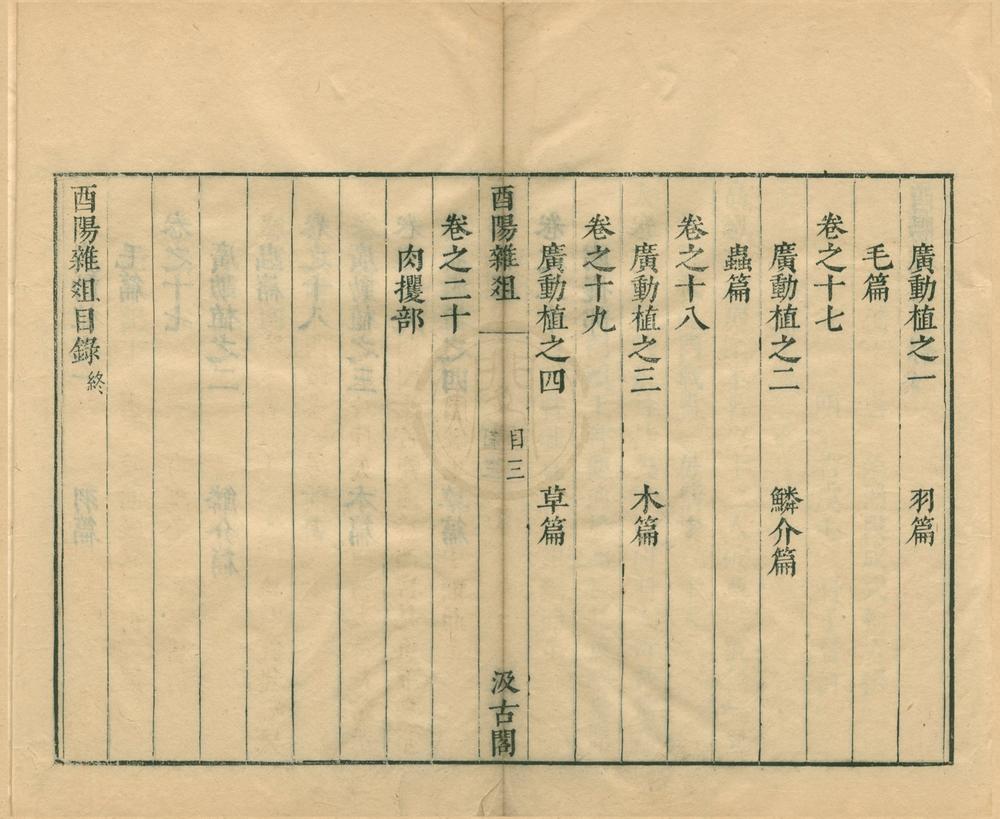 廣動植之一　羽篇
毛篇
卷之十七
廣動植之二　鱗介篇
蟲篇
卷之十八
廣動植之三　木篇
卷之十九
廣動植之四　草篇
酉陽雜俎　目三　汲古閣
卷之二十
肉攫部
酉陽雜俎目錄終